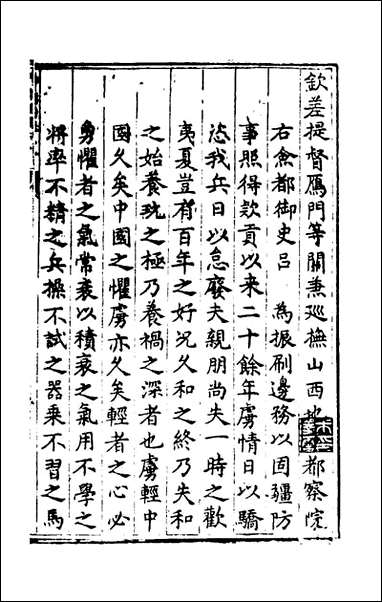 欽差提督鴈門等關兼巡撫山西地方都察院
右僉都御史吕　為振刷邊務以固疆防
事照得款貢以来二十餘年虜情日以驕
恣我兵日以怠廢夫親朋尚失一時之歡
夷夏豈有百年之好况久和之終乃失和
之始養玩之極乃養禍之深者也虜輕中
國久矣中國之懼虜亦久矣輕者之心必
勇懼者之氣常衰以積衰之氣用不學之
將率不精之兵操不試之器乘不習之馬